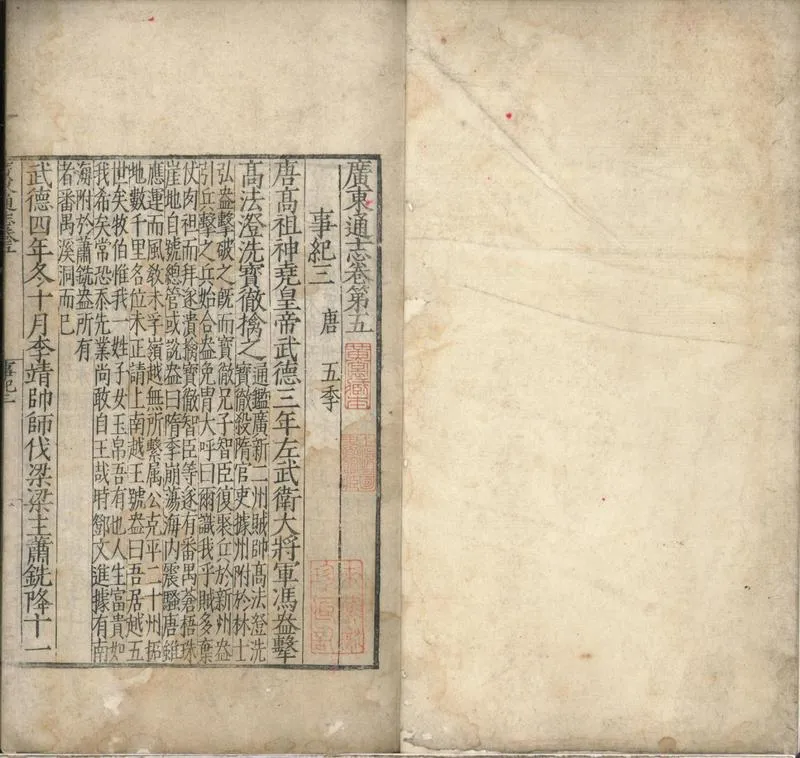 廣東通志卷第五
事紀三 唐 五季
唐髙祖神堯皇帝武德三年左武衛大將軍馮盎擊
髙法澄洗寳徹擒之
通鑑廣新二州賊帥髙法澄洗
寳徹殺隋官吏據州附於林士
弘盎擊破之旣而寳徹兄子智臣復聚兵於新州盎
引兵擊之兵始合盎免冑大呼曰爾識我乎賊多棄
仗肉袒而拜遂潰擒寳徹智臣等遂有番禺蒼梧珠
崖地自號總管或說盎曰隋季崩蕩海内震騷唐雖
應運而風敎未孚嶺越無所繫属公克平二十州拓
地數千里名位未正請上南越王號盎曰吾居越五
世矣牧伯惟我一姓子女玉帛吾有也人生富貴如
我希矣常恐忝先業尚敢自王哉時鄧文進據有南
海附於蕭銑盎所有
者番禺溪洞而已
武德四年冬十月李靖帥師伐梁梁主蕭銑降十一